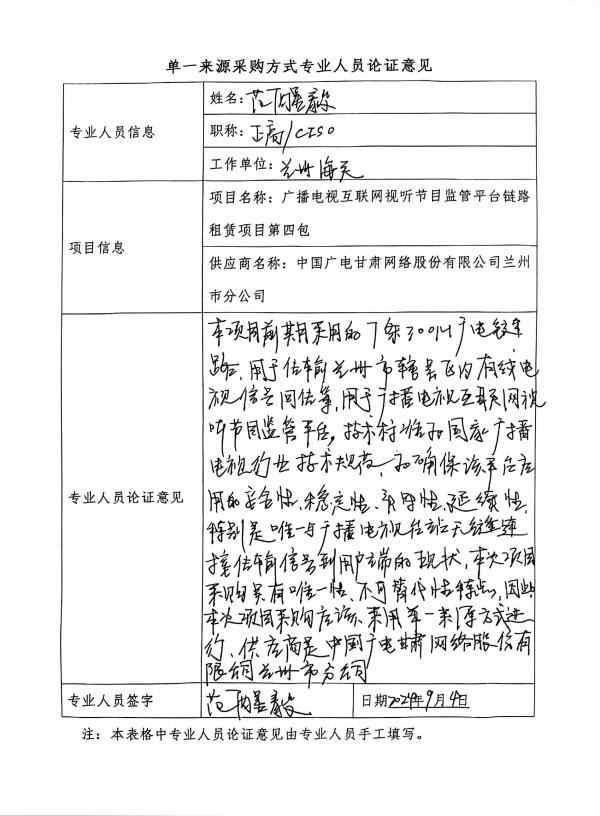 单一来源采购方式专业人员论证意见
专业人员信息
姓名：范 毅
职称：正高/CISO
工作单位：兰州海天
项目信息
项目名称：广播电视互联网视听节目监管平台链路
租赁项目第四包
供应商名称：中国广电甘肃网络股份有限公司兰州
市分公司
专业人员论证意见
本项目前期采用的7条300M广电
路，用于传输兰州市辖县区内有线电
视信号回传等，用于广播电视互联网视
听节目监管平台，技术标准为国家广播
电视行业技术规范，为确保该平台应
用的安全性、稳定性、 性、延续性，
特别是唯一与广播电视 无缝连
接传输信号到用户端的现状，本次项目
采购具有唯一性、不可替代性特点，因此
本次项目采购应该采用单一来源方式进
行，供应商是中国广电甘肃网络股份有
限公司兰州市分公司
专业人员签字
范 毅
日期2024年9月4日
注：本表格中专业人员论证意见由专业人员手工填写。